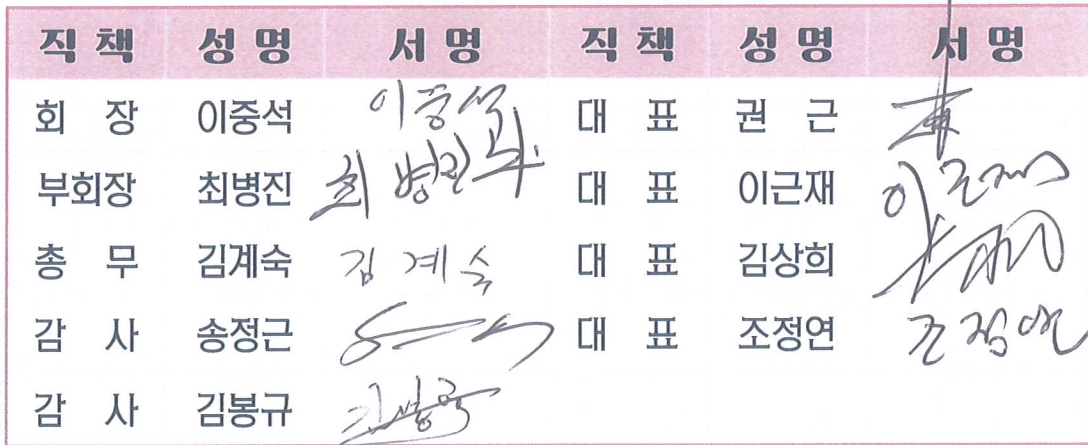 직 책 성 명 서 명 직 책 성 명 서 명
회 장 이중석 이중석 대 표 권 근
부회장 최병진 최병진 대 표 이근재 이근재
총 무 김계숙 김계숙 대 표 김상희
감 사 송정근 대 표 조정연 조정연
감 사 김봉규 김봉규